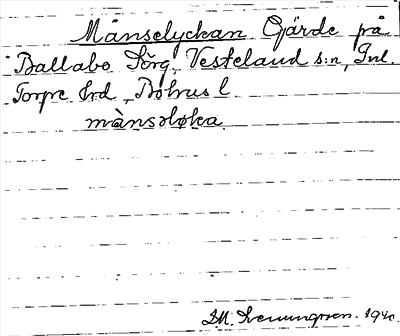 Månselyckan Gärde på
Ballabo Törg, Vesteland s:n, Inl.
Torpe hrd, Bohus l
mànsəløka
J.M. Svenungsson. 1940.